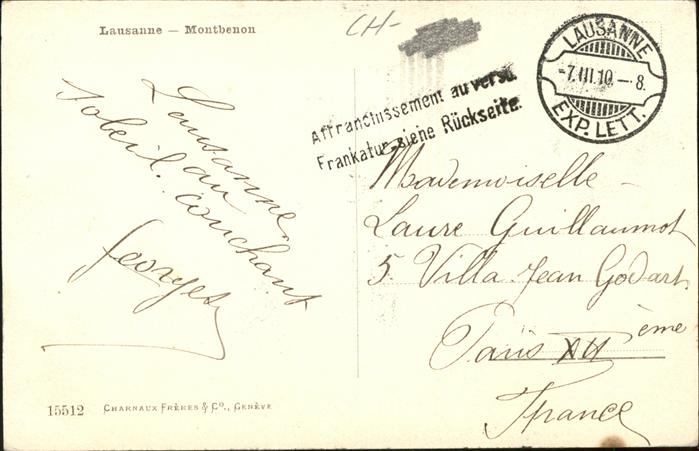 Lausanne – Montbenon
CH-
Affranchissement au verso.
Frankatur siehe Rückseite.
LAUSANNE
-7.III.10.—8.
EXP. LETT.
Lausanne.
Soleil au
couchant
Georges
Mademoiselle –
Laure Guillaumot
5. Villa Jean Godart.
Paris XII ème
France
15512 CHARNAUX FRÈRES & Co., GENÈVE